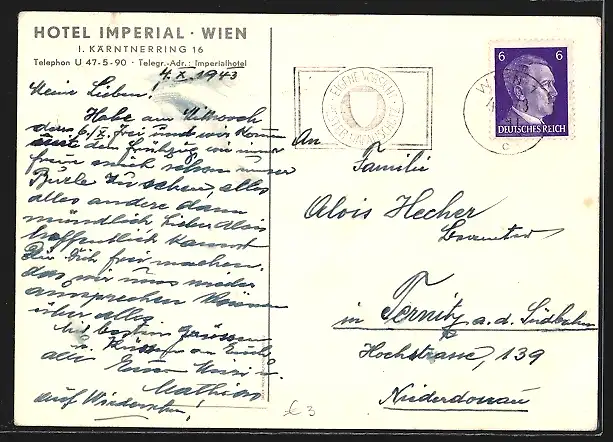 HOTEL IMPERIAL · WIEN
I. KÄRNTNERRING 16
Telephon U 47-5-90 · Telegr.-Adr.: Imperialhotel
4. X. 1943
Meine Lieben!
Habe am Mittwoch
den 6./X. frei und wir
mit dem Frühzug wie immer
freue mich schon unser
zu sehen, alles
alles andere dann
mündlich Lieber Alois
hoffentlich kannst
Du Dich frei machen.
das wir uns wieder
aussprechen können
über alles
Mit besten Grüssen
u. Küssen an Euch
alle Euer u.
Mathias
auf Wiedersehen!
6 6
DEUTSCHES REICH
c
An
Familie
Alois Hecher
Beamter
in Ternitz a. d. Südbahn
Hochstrasse, 139
Niederdonau
€3